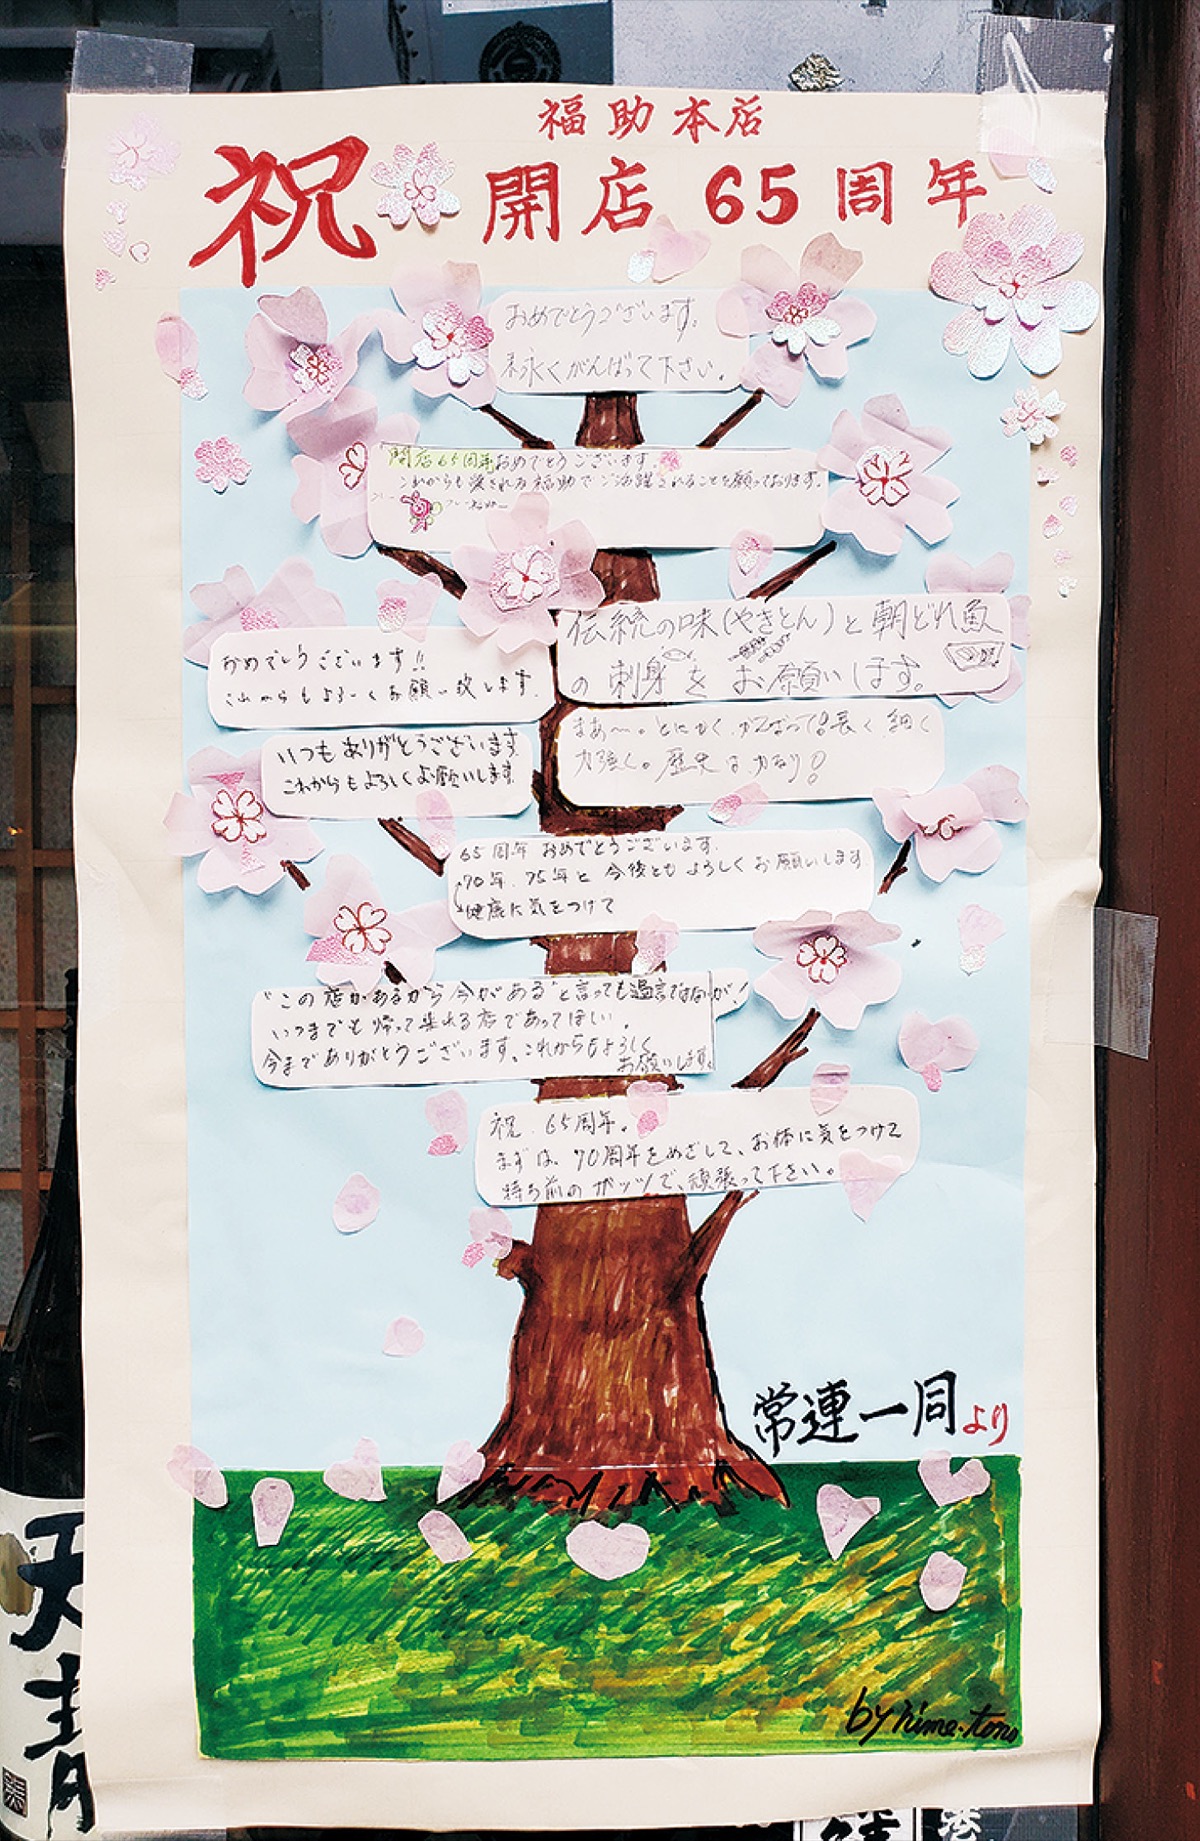 福助本店
祝 開店65周年
おめでとうございます。
末永くがんばって下さい。
開店65周年おめでとうございます。
これからも愛される福助でご活躍されることを願っております。
フレーフレー
伝統の味(やきとん)と朝どれ魚
の刺身をお願いします。
おめでとうございます!!
これからもよろしくお願い致します。
まあ〜。とにかくがんばって!長く細く
力強く。歴史は力なり!
いつもありがとうございます
これからもよろしくお願いします
65周年おめでとうございます。
70年、75年と今後ともよろしくお願いします
健康に気をつけて
"この店があるから今がある"と言っても過言ではないが!
いつまでも帰って来れる店であってほしい。
今までありがとうございます、これからもよろしく
お願いします。
祝 65周年。
まずは、70周年をめざして、お体に気をつけて
持ち前のガッツで、頑張って下さい。
常連一同より
by hime-tono